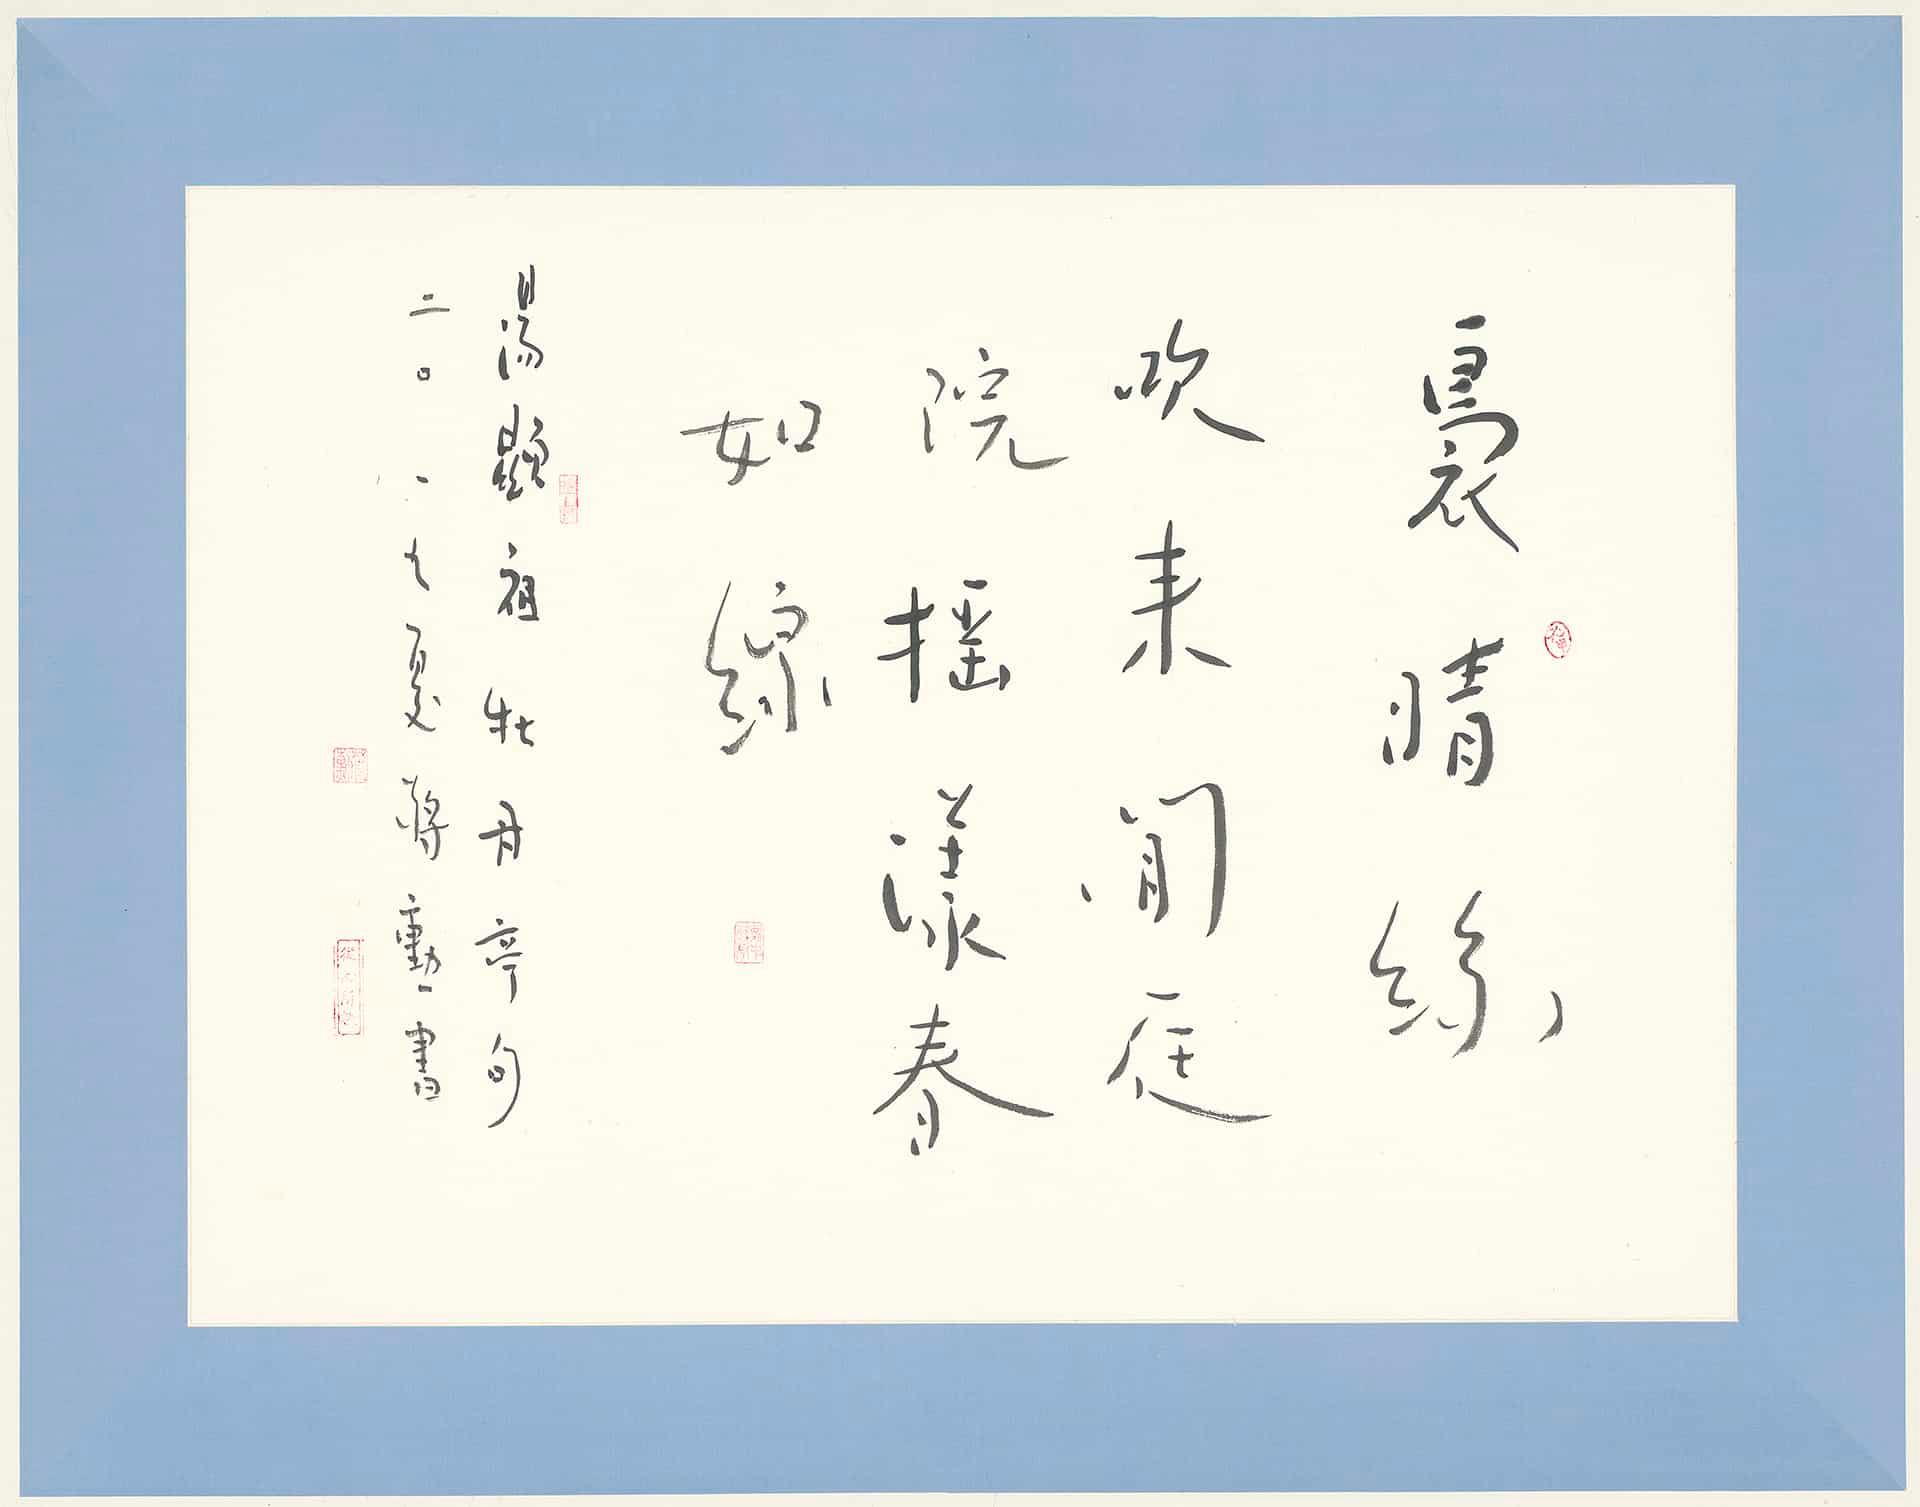 裊晴絲
吹来閒庭
院摇漾春
如線
湯顯祖牡丹亭句
二〇一九夏蔣勳書